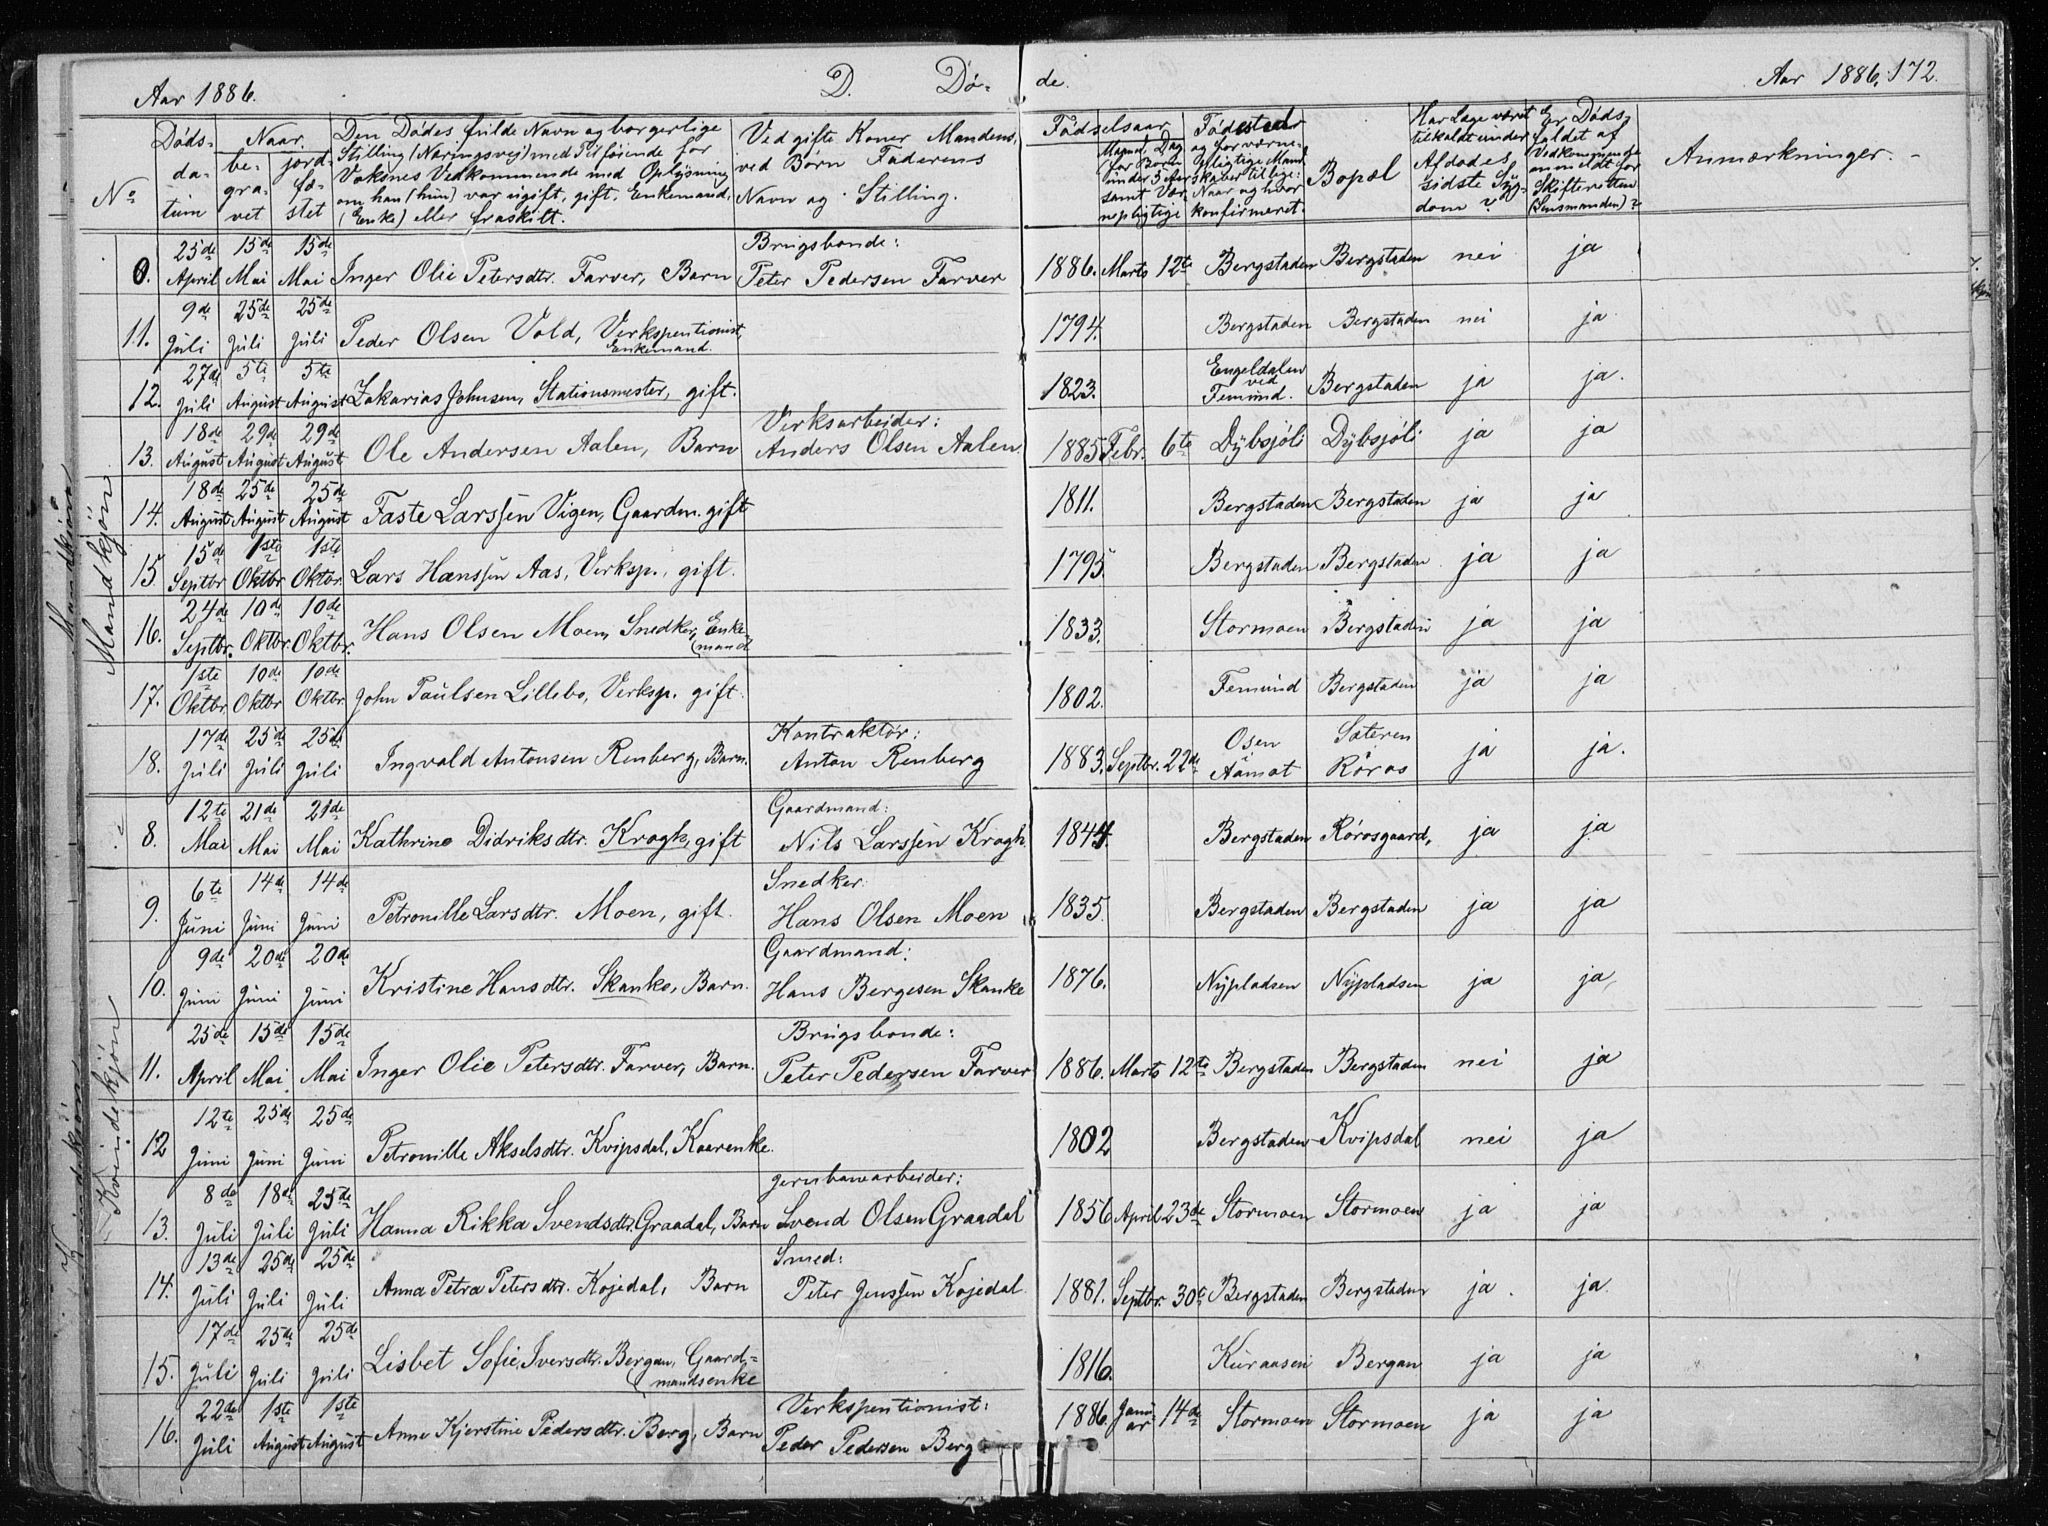 Aar 1886.
D. Dø- de.
Aar 1886. 172.
No
Døds-
da-
tum
Naar
be-
gra-
vet
jord-
fæ-
stet
Den Dødes fulde Navn og borgerlige
Stilling (Næringsvei) med Tilføiende for
Voksnes Vedkommende med Oplysning
om han (hun) var ugift, gift, Enkemand,
(Enke) eller fraskilt.
Ved gifte Koner Mandens,
ved Børn Faderens
Navn og Stilling.
Fødselsaar
Maaned, Dag
for Børn
under 5 Aar
samt Vær-
nepligtige
Fødested
og for værne-
pligtige Mand-
skaber tillige:
Naar og hvor
konfirmeret.
Bopæl
Har Læge været
tilkaldt under
Afdødes
sidste Syg-
dom?
Er Døds-
faldet af
Vedkommende
anmeldt for
Skifteretten
(Lensmanden)?
Anmærkninger.
Mandkjøn
0. 25de April 15de Mai 15de Mai Inger Olie Petersdtr. Farver, Barn Brugsbonde: Peter Pedersen Farver 1886. Marts 12te Bergstaden Bergstaden nei ja
11. 9de Juli 25de Juli 25de Juli Peder Olsen Vold, Verkspentionist, Enkemand. 1794. Bergstaden Bergstaden nei ja
12. 27de Juli 5te August 5te August Zakarias Johnsen, Stationsmester, gift. 1823. Engeldalen ved Femund. Bergstaden ja ja.
13. 18de August 29de August 29de August Ole Andersen Aalen, Barn Verksarbeider: Anders Olsen Aalen. 1885 Febr. 6te Dybsjöli Dybsjöli ja ja
14. 18de August 25de August 25de August Faste Larssen Vigen, Gaardm. gift 1811. Bergstaden Bergstaden ja ja
15. 15de Septbr. 1ste Oktbr. 1ste Oktbr. Lars Hanssen Aas, Verksp., gift. 1795. Bergstaden Bergstaden ja ja
16. 24de Septbr. 10de Oktbr. 10de Oktbr. Hans Olsen Moen, Snedker, Enke- mand 1833. Stormoen Bergstaden ja ja
17. 1ste Oktbr. 10de Oktbr. 10de Oktbr. John Paulsen Lillebo, Verksp. gift. 1802. Femund Bergstaden ja ja
18. 17de Juli 25de Juli 25de Juli Ingvald Antonsen Renberg, Barn. Kontraktør: Anton Renberg 1883. Septbr. 22de Osen Aamot Sæteren Röros ja ja.
Kvindekjøn
8. 12te Mai 21de Mai 21de Mai Kathrine Didriksdtr. Krogh, gift Gaardmand: Nils Larssen Krogh. 1844. Bergstaden Rörosgaard, ja ja
9. 6te Juni 14de Juni 14de Juni Petronille Larsdtr. Moen, gift. Snedker: Hans Olsen Moen 1835. Bergstaden Bergstaden ja ja
10. 9de Juni 20de Juni 20de Juni Kristine Hansdtr. Skanke, Barn. Gaardmand: Hans Bergesen Skanke 1876. Nypladsen Nypladsen ja ja
11. 25de April 15de Mai 15de Mai Inger Olie Petersdtr. Farver, Barn. Brugsbonde: Peter Pedersen Farver 1886. Marts 12te Bergstaden Bergstaden nei ja
12 12te Juni 25de Juni 25de Juni Petronille Akselsdtr. Kvipsdal, Kaarenke. 1802 Bergstaden Kvipsdal nei ja
13. 8de Juli 18de Juli 25de Juli Hanna Rikka Svendsdtr. Graadal, Barn Jernbanearbeider: Svend Olsen Graadal 1856 April 23de Stormoen Stormoen ja ja
14. 13de Juli 25de Juli 25de Juli Anna Petra Petersdtr. Kojedal, Barn Smed: Peter Jenssen Kojedal. 1881. Septbr. 30te Bergstaden Bergstaden ja. ja.
15. 17de Juli 25de Juli 25de Juli Lisbet Sofie Iversdtr. Bergan, Gaard- mandsenke 1816. Kuraasen Bergan ja ja
16. 22de Juli 1ste August 1ste August Anne Kjerstine Pedersdtr. Berg, Barn Verkspentionist: Peder Pedersen Berg 1886. Janu- ar 14de Stormoen Stormoen ja ja